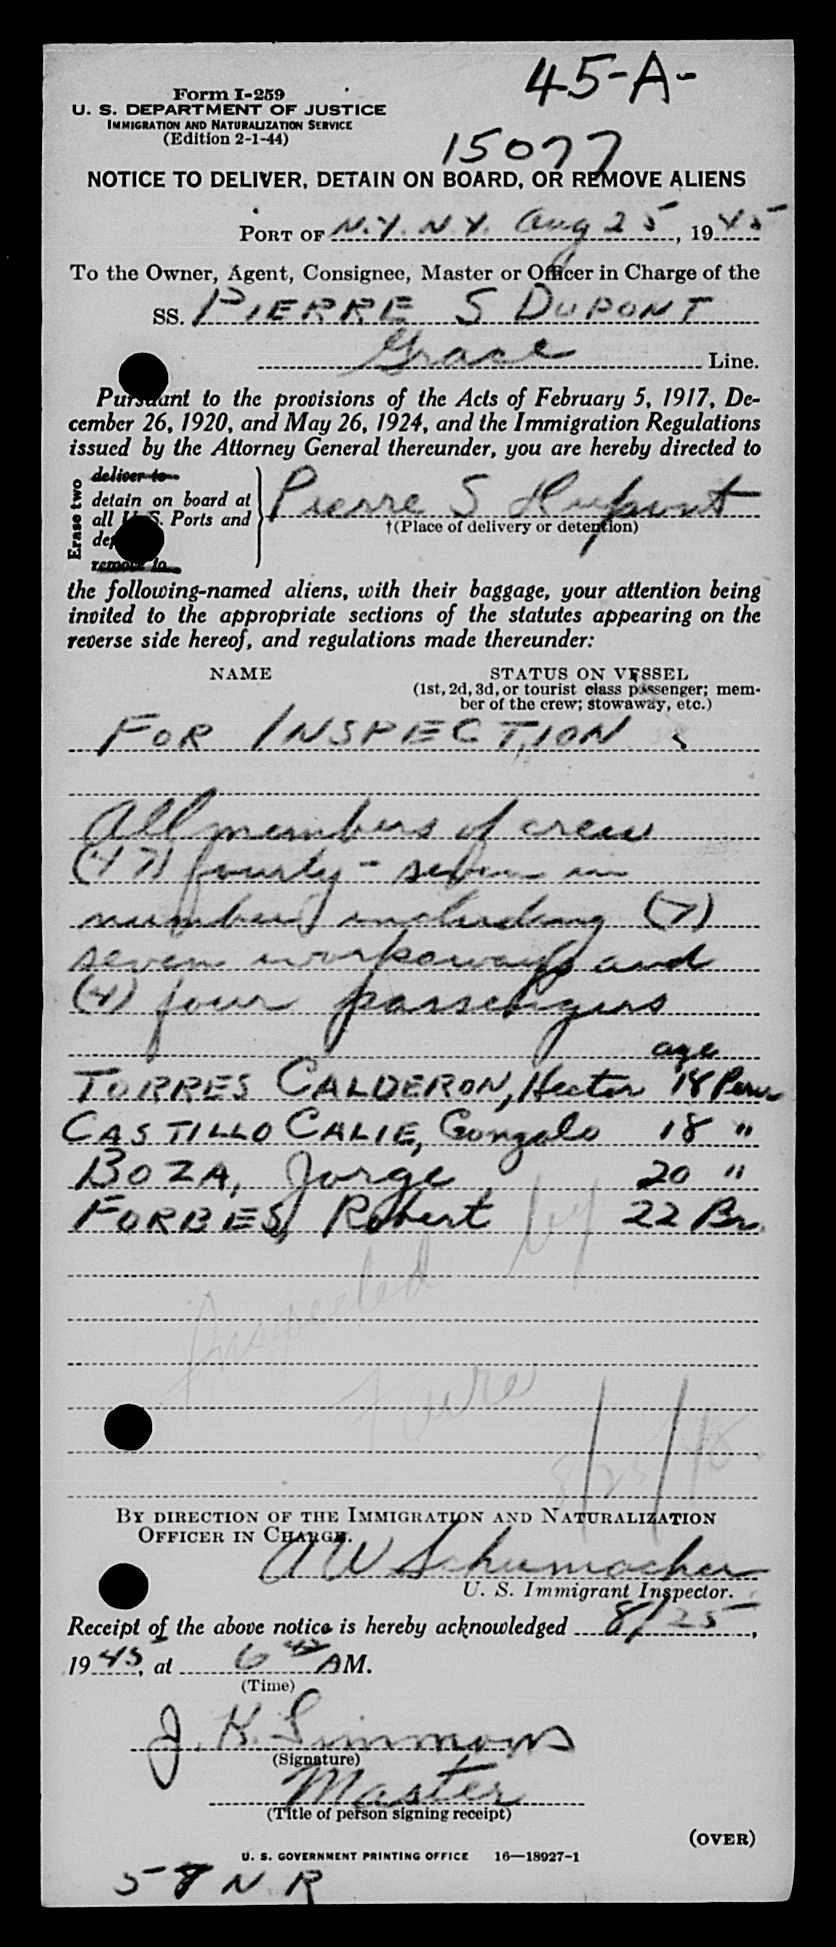 45-A-
Form I-259
U. S. DEPARTMENT OF JUSTICE
IMMIGRATION AND NATURALIZATION SERVICE
(Edition 2-1-44)
15077
NOTICE TO DELIVER, DETAIN ON BOARD, OR REMOVE ALIENS
PORT OF N.Y. N.Y. Aug 25, 1945
To the Owner, Agent, Consignee, Master or Officer in Charge of the
SS. PIERRE S DUPONT
Grace Line.
Pursuant to the provisions of the Acts of February 5, 1917, De-
cember 26, 1920, and May 26, 1924, and the Immigration Regulations
issued by the Attorney General thereunder, you are hereby directed to
Erase two
deliver to
detain on board at
all U.S. Ports and
remove to
Pierre S Dupont
†(Place of delivery or detention)
the following-named aliens, with their baggage, your attention being
invited to the appropriate sections of the statutes appearing on the
reverse side hereof, and regulations made thereunder:
NAME STATUS ON VESSEL
(1st, 2d, 3d, or tourist class passenger; mem-
ber of the crew; stowaway, etc.)
FOR INSPECTION
All members of crew
(47) fourty-seven in
number including (7)
seven workaways and
(4) four passengers
age
TORRES CALDERON, Hector 18 Peru
CASTILLO CALIE, Gonzalo 18 "
BOZA, Jorge 20 "
FORBES, Robert 22 Br.
Inspected by
8/25/45
BY DIRECTION OF THE IMMIGRATION AND NATURALIZATION
OFFICER IN CHARGE.
A W Schumacher
U. S. Immigrant Inspector.
Receipt of the above notice is hereby acknowledged 8/25,
1945, at 6 AM.
(Time)
J. K. Simmons
(Signature)
Master
(Title of person signing receipt)
(OVER)
U. S. GOVERNMENT PRINTING OFFICE 16—18927-1
58 N R